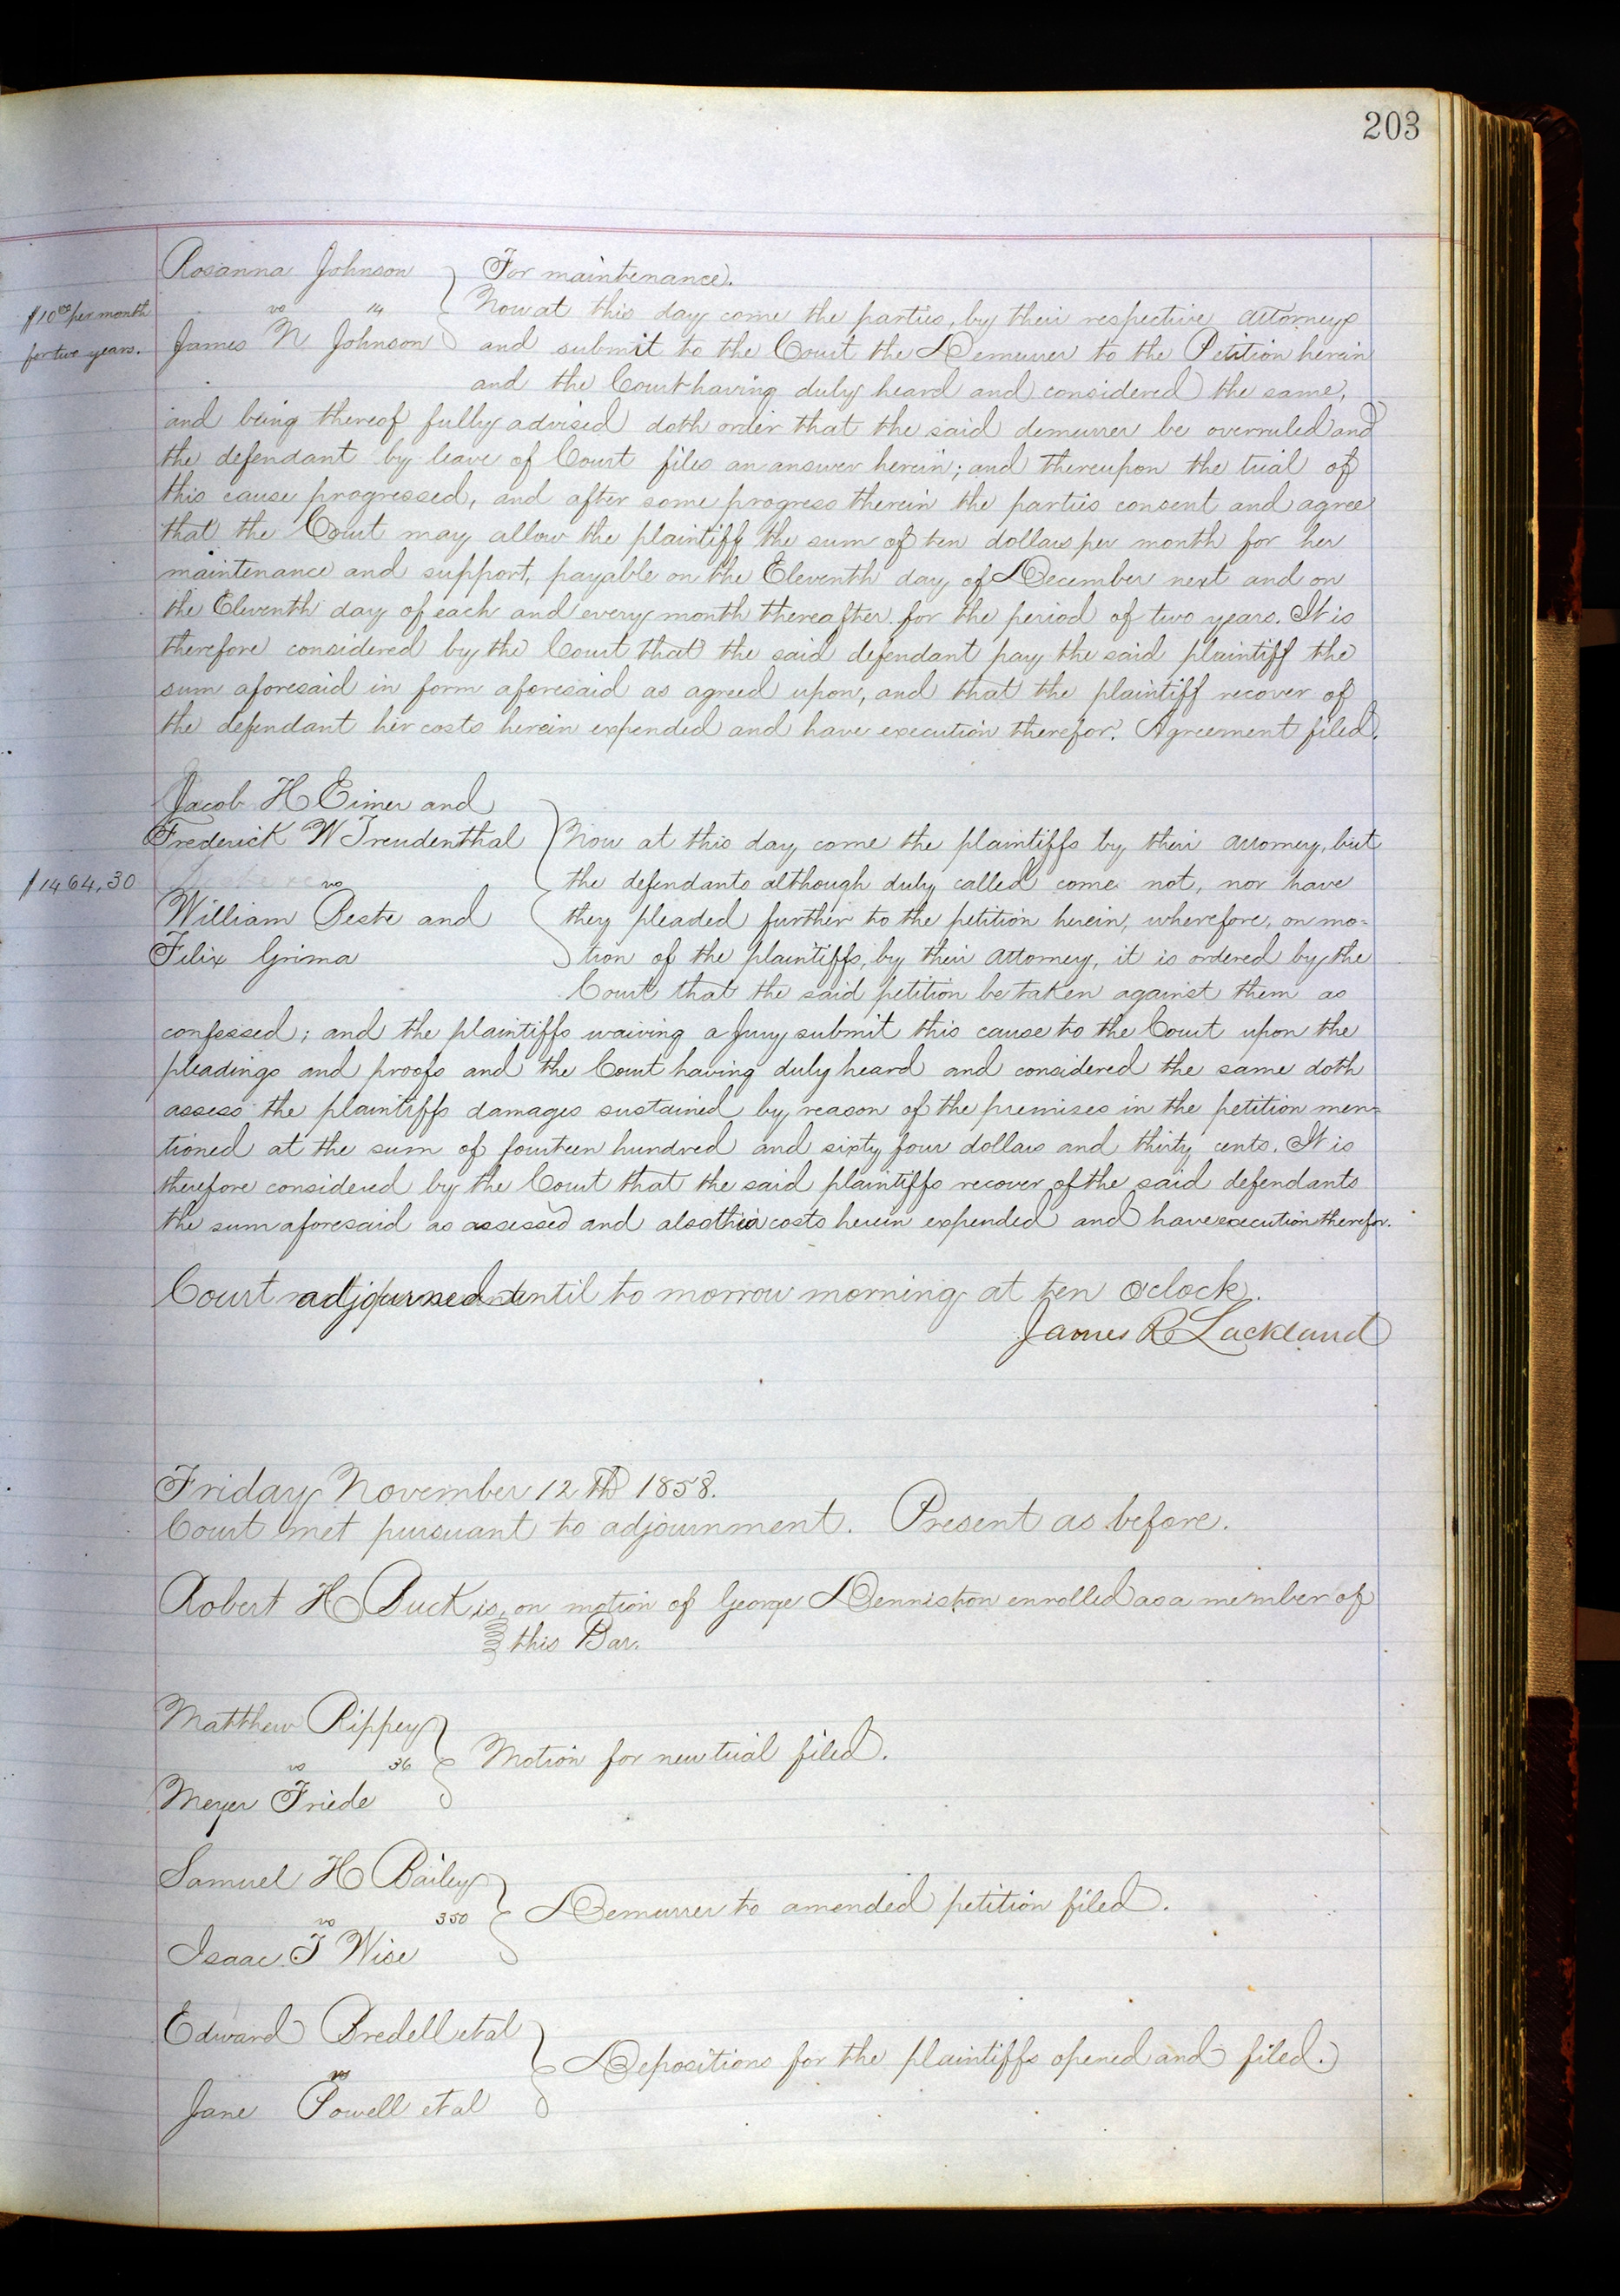 203
Rosanna Johnson
vs 14
James N Johnson
$10 00 per month
for two years.
For maintenance.
Now at this day come the parties, by their respective attorneys
and submit to the Court the Demurrer to the Petition herein
and the Court having duly heard and considered the same,
and being thereof fully advised doth order that the said demurrer be overruled and
the defendant by leave of Court files an answer herein; and thereupon the trial of
this cause progressed, and after some progress therein the parties consent and agree
that the Court may allow the plaintiff the sum of ten dollars per month for her
maintenance and support, payable on the Eleventh day of December next and on
the Eleventh day of each and every month thereafter for the period of two years. It is
therefore considered by the Court that the said defendant pay the said plaintiff the
sum aforesaid in form aforesaid as agreed upon, and that the plaintiff recover of
the defendant her costs herein expended and have execution therefor. Agreement filed.
Jacob H Eimer and
Frederick W Treudenthal
vs
William Beste and
Felix Grima
$1464,30
Now at this day come the plaintiffs by their attorney, but
the defendants although duly called come not, nor have
they pleaded further to the petition herein, wherefore, on mo=
tion of the plaintiffs, by their attorney, it is ordered by the
Court that the said petition be taken against them as
confessed; and the plaintiffs waiving a Jury submit this cause to the Court upon the
pleadings and proofs and the Court having duly heard and considered the same doth
assess the plaintiffs damages sustained by reason of the premises in the petition men=
tioned at the sum of fourteen hundred and sixty four dollars and thirty cents. It is
therefore considered by the Court that the said plaintiffs recover of the said defendants
the sum aforesaid as assessed and also their costs herein expended and have execution therefor.
Court adjourned until to morrow morning at ten o'clock.
James R Lackland
Friday November 12th 1858.
Court met pursuant to adjournment. Present as before.
Robert H Buck is, on motion of George Denniston enrolled as a member of
this Bar.
Matthew Rippey
vs 36
Meyer Friede
Motion for new trial filed.
Samuel H Bailey
vs 350
Isaac T Wise
Demurrer to amended petition filed.
Edward Bredell et al
vs
Jane Powell et al
Depositions for the plaintiffs opened and filed.